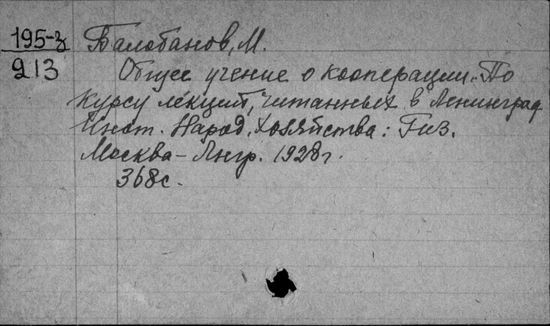 195-з Балабанов, М.
213
Общее учение о кооперации. По
курсу лекций, читанных в Ленинград.
Инст. Народ. Хозяйства: Гиз.
Москва - Лнгр. 1928 г.
368 с.